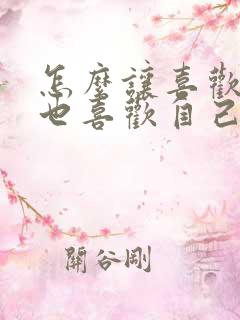 怎麼讓喜歡
也喜歡自己
關谷剛